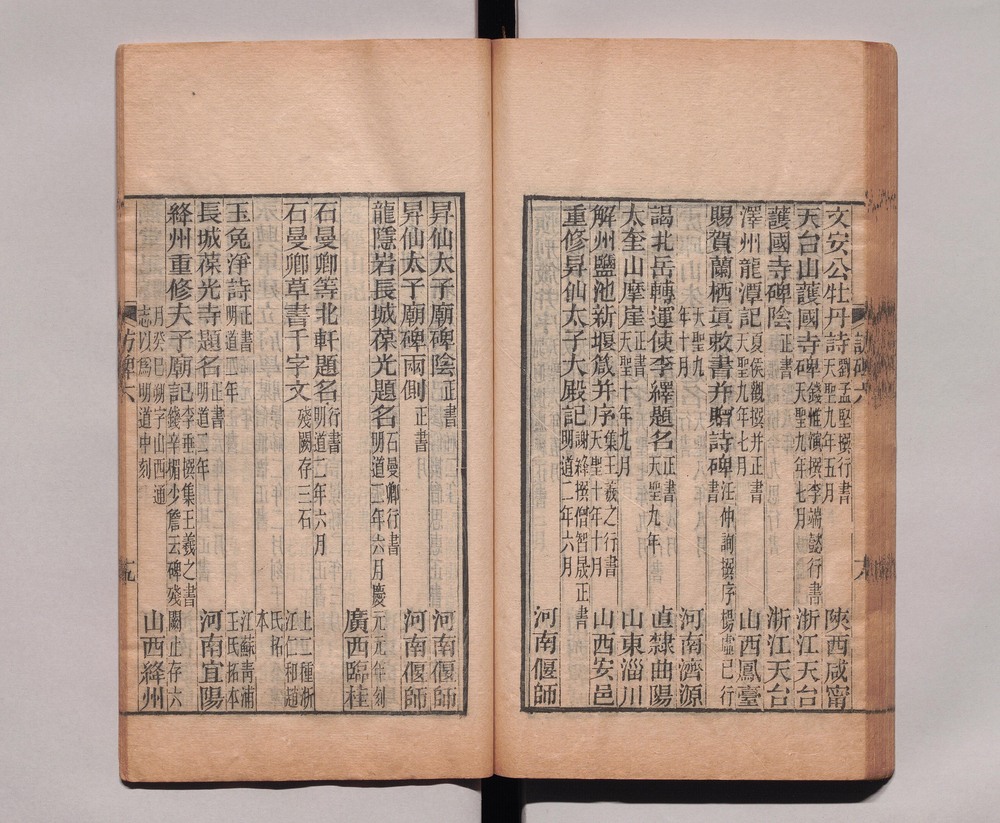 文安公牡丹詩 劉孟堅撰行書 天聖九年五月 陝西咸甯
天台山護國寺碑 錢惟演撰李端懿行書 天聖九年七月 浙江天台
護國寺碑陰 正書 浙江天台
澤州龍潭記 夏侯觀撰并正書 天聖九年七月 山西鳳臺
賜賀蘭栖眞敕書并贈詩碑 汪仲詢撰序楊虛己行書
天聖九年十月 河南濟源
謁北岳轉運使李繹題名 正書 天聖九年 直隸曲陽
太奎山摩崖 正書 天聖十年九月 山東淄川
解州鹽池新堰箴并序 集王羲之行書 天聖十年十月 山西安邑
重修昇仙太子大殿記 謝絳撰僧智晟正書 明道二年六月 河南偃師
昇仙太子廟碑陰 正書 河南偃師
昇仙太子廟碑兩側 正書 河南偃師
龍隱岩長城葆光題名 石曼卿行書 明道二年六月慶元元年刻 廣西臨桂
石曼卿等北軒題名 行書 明道二年六月
石曼卿草書千字文 殘闕存三石 上二種浙江仁和趙氏拓本
玉兔淨詩 正書 明道二年 江蘇靑浦王氏拓本
長城葆光寺題名 正書 明道二年 河南宜陽
絳州重修夫子廟記 李垂撰集王羲之書 錢辛楣少詹云碑殘闕止存六
月癸巳朔字山西通志以爲明道中刻 山西絳州